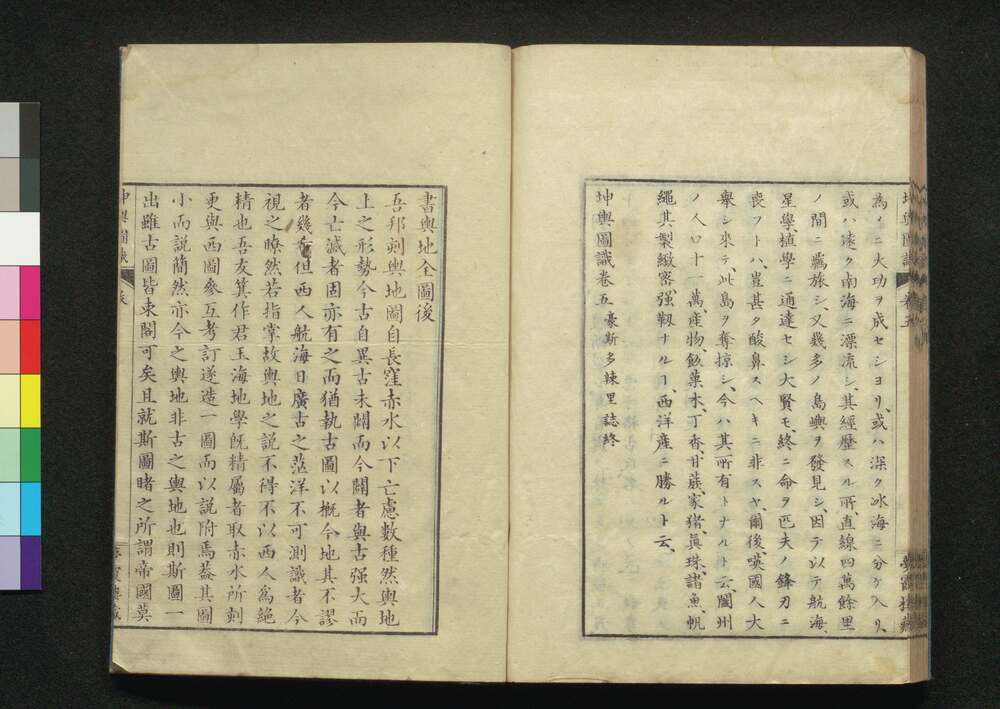 坤輿圖識 卷五
為メニ大功ヲ成セシヨリ、或ハ深ク氷海ニ分ケ入リ、
或ハ遠ク南海ニ漂流シ、其經歷スル所、直線四萬餘里
ノ間ニ羈旅シ、又幾多ノ島嶼ヲ發見シ、因テ以テ航海、
星學植學ニ通達セシ大賢モ、終ニ命ヲ匹夫ノ鋒刃ニ
喪フトハ、豈甚タ酸鼻スヘキニ非スヤ、爾後、嘆國人大
舉シ來テ、此島ヲ奪掠シ、今ハ其所有トナルト云、闔州
ノ人口十一萬、産物、飯菓木、丁香、甘蔗、家猪、眞珠、諸魚、帆
繩、其製緻密、强靱ナルヿ、西洋産ニ勝ルト云、
坤輿圖識卷五 豪斯多辣里誌終
書輿地全圖後
吾邦刻輿地圖自長窪赤水以下亡慮數種然輿地
上之形勢今古自異古未闢而今闢者與古强大而
今亡滅者固亦有之而猶執古圖以概今地其不謬
者幾希但西人航海日廣古之茫洋不可測識者今
視之瞭然若指掌故輿地之説不得不以西人爲絶
精也吾友箕作君玉海地學旣精屬者取赤水所刻
更與西圖參互考訂遂造一圖而以説附焉蓋其圖
小而説簡然亦今之輿地非古之輿地也則斯圖一
出雖古圖皆束閣可矣且就斯圖睹之所謂帝國莫